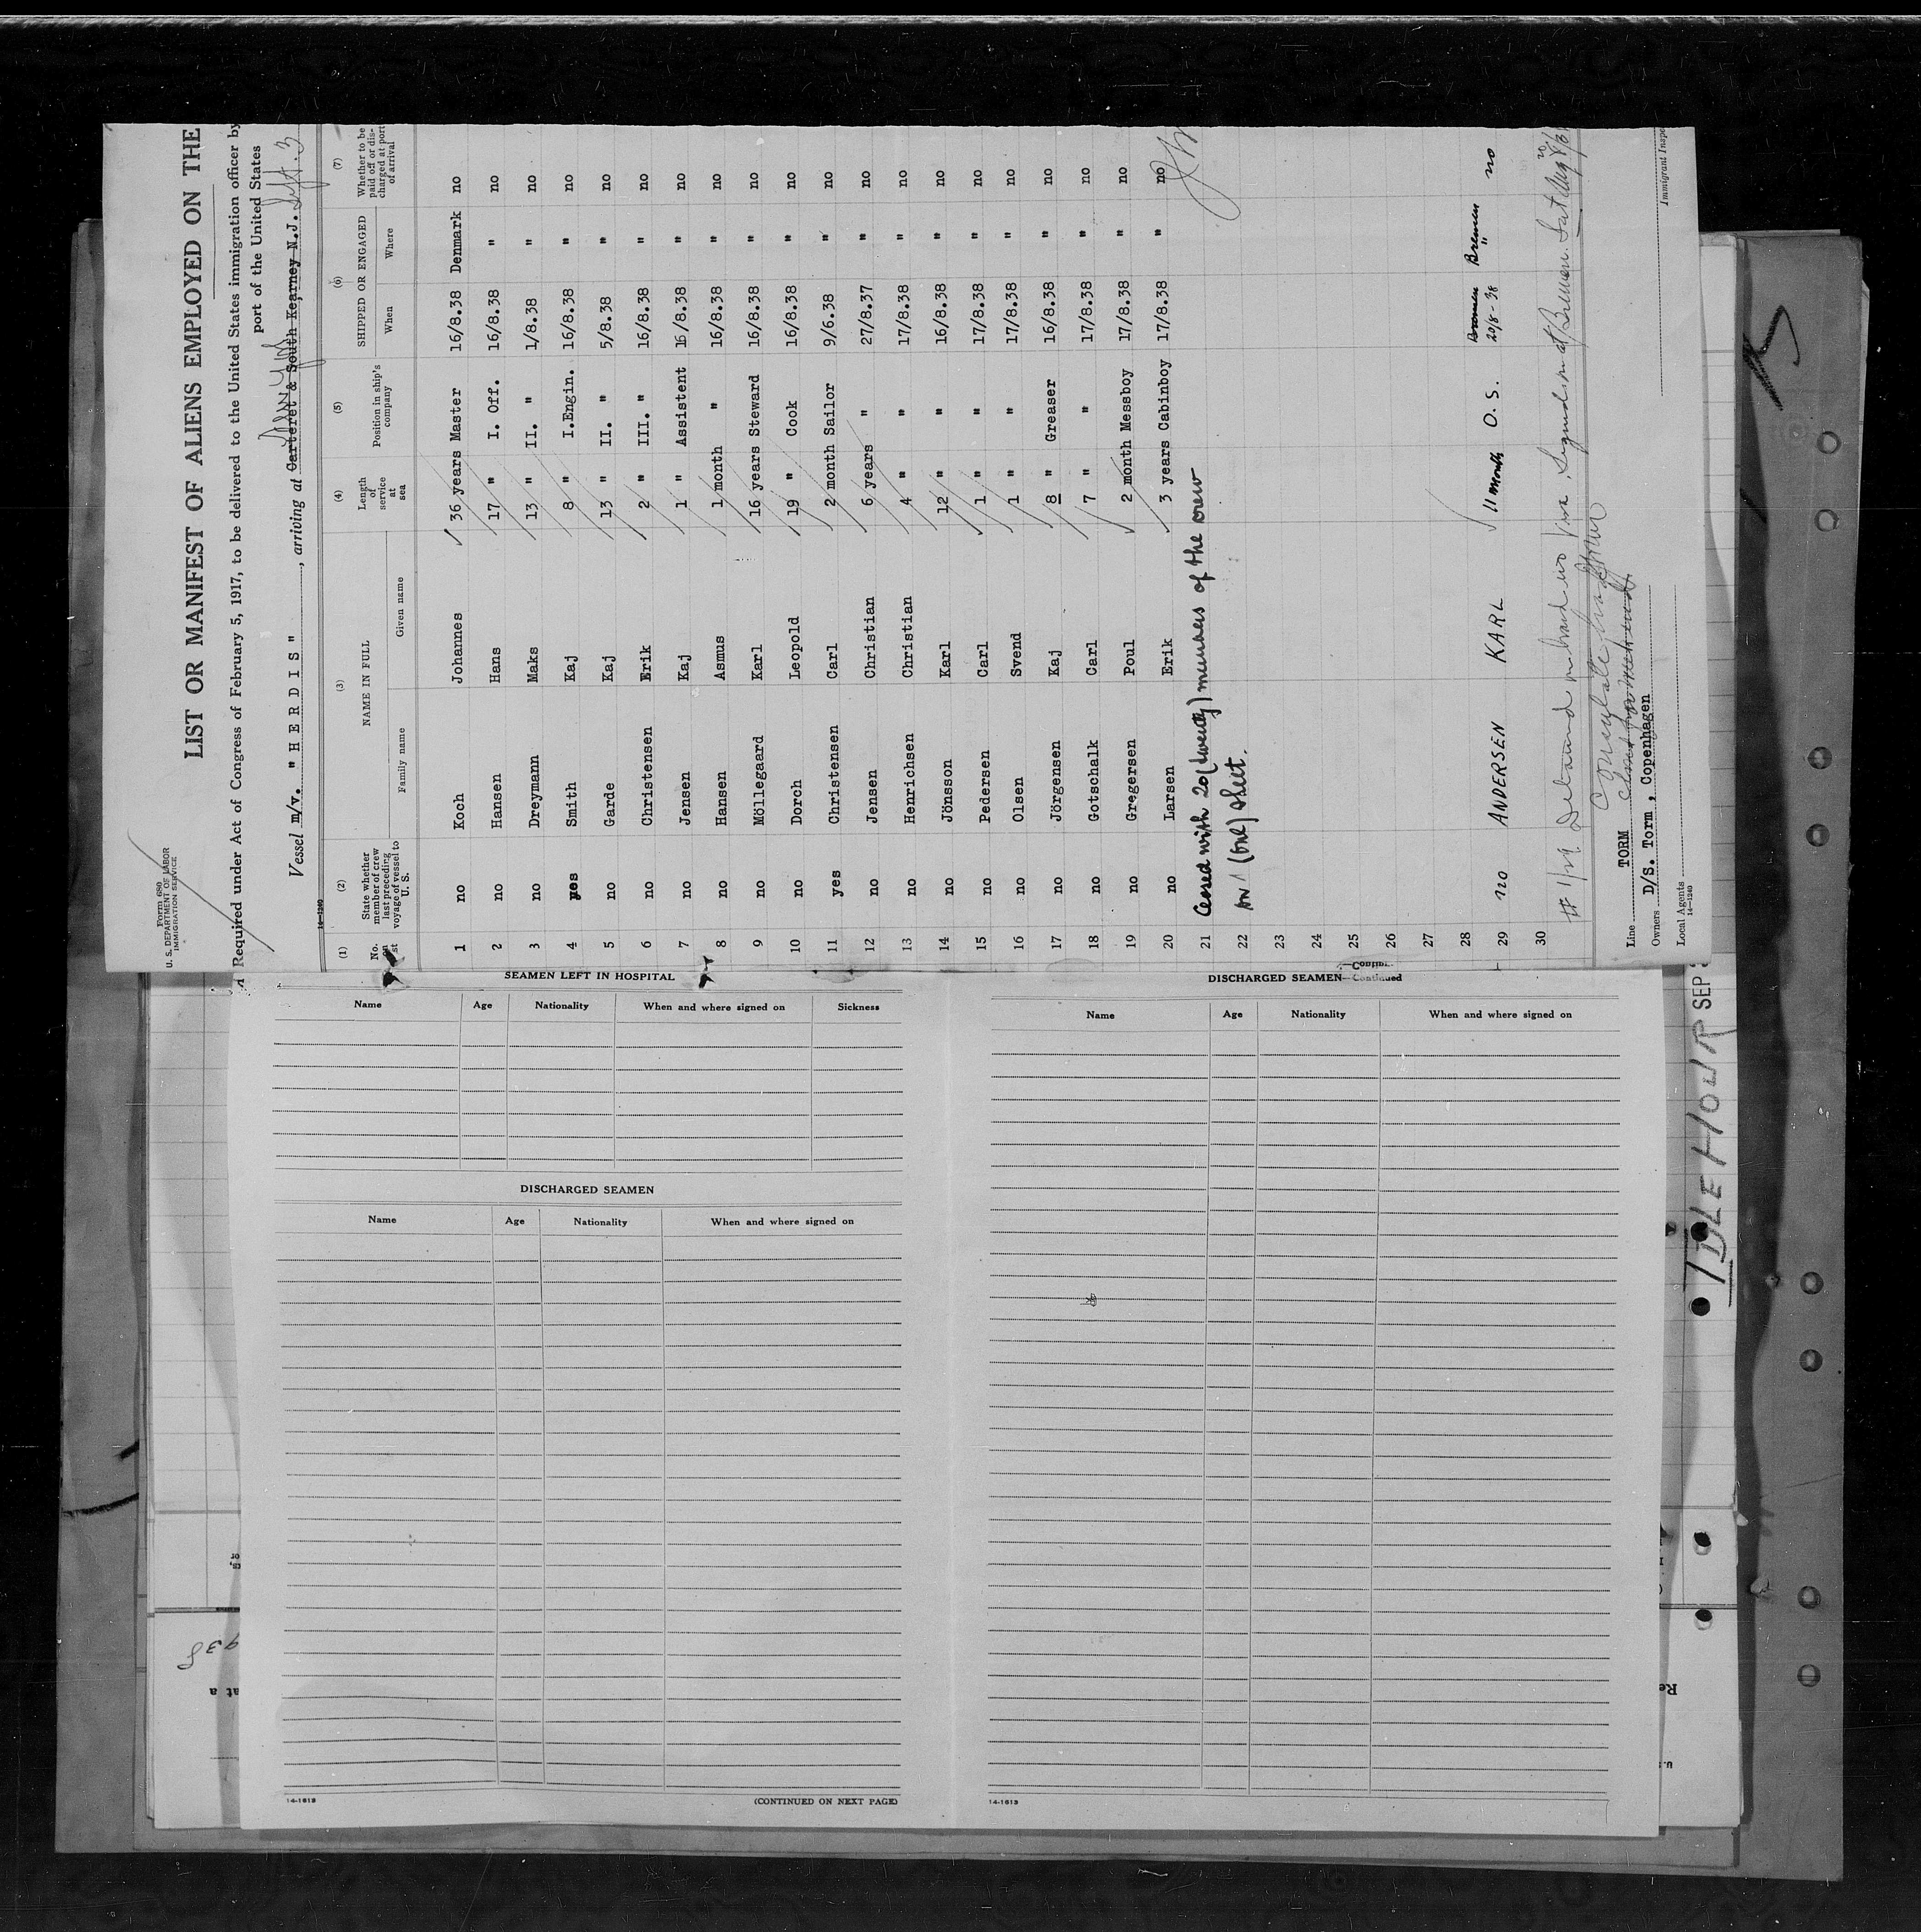 Form 680
U. S. DEPARTMENT OF LABOR
IMMIGRATION SERVICE
LIST OR MANIFEST OF ALIENS EMPLOYED ON THE
Required under Act of Congress of February 5, 1917, to be delivered to the United States immigration officer by
port of the United States
Vessel m/v. " H E R D I S " , arriving at Carteret & South Kearney N.J. Sept. 3
14-1240
(1) (2) (3) (4) (5) (6) (7)
No. on list State whether member of crew last preceding voyage of vessel to U. S. NAME IN FULL Length of service at sea Position in ship's company SHIPPED OR ENGAGED Whether to be paid off or discharged at port of arrival
Family name Given name When Where
1 no Koch Johannes 36 years Master 16/8.38 Denmark no
2 no Hansen Hans 17 " I. Off. 16/8.38 " no
3 no Dreymann Maks 13 " II. " 1/8.38 " no
4 yes Smith Kaj 8 " I.Engin. 16/8.38 " no
5 no Garde Kaj 13 " II. " 5/8.38 " no
6 no Christensen Erik 2 " III. " 16/8.38 " no
7 no Jensen Kaj 1 " Assistent 15/8.38 " no
8 no Hansen Asmus 1 month " 16/8.38 " no
9 no Möllegaard Karl 16 years Steward 16/8.38 " no
10 no Dorch Leopold 19 " Cook 16/8.38 " no
11 yes Christensen Carl 2 month Sailor 9/6.38 " no
12 no Jensen Christian 6 years " 27/8.37 " no
13 no Henrichsen Christian 4 " " 17/8.38 " no
14 no Jönsson Karl 12 " " 16/8.38 " no
15 no Pedersen Carl 1 " " 17/8.38 " no
16 no Olsen Svend 1 " " 17/8.38 " no
17 no Jörgensen Kaj 8 " Greaser 16/8.38 " no
18 no Gotschalk Carl 7 " " 17/8.38 " no
19 no Gregersen Poul 2 month Messboy 17/8.38 " no
20 no Larsen Erik 3 years Cabinboy 17/8.38 " no
21 Closed with 20 (twenty) members of the crew
22 on 1 (one) sheet.
23
24
25
26
27
28 Bremen Bremen
29 no ANDERSEN KARL 11 month O. S. 20/8-38 " no
30
Line TORM
Owners D/S. Torm , Copenhagen
Immigrant Inspe
Local Agents
14-1240
SEAMEN LEFT IN HOSPITAL
Name Age Nationality When and where signed on Sickness
DISCHARGED SEAMEN
Name Age Nationality When and where signed on
14-1613
(CONTINUED ON NEXT PAGE)
DISCHARGED SEAMEN—Continued
Name Age Nationality When and where signed on
14-1613
SEP
IDLE HOUR